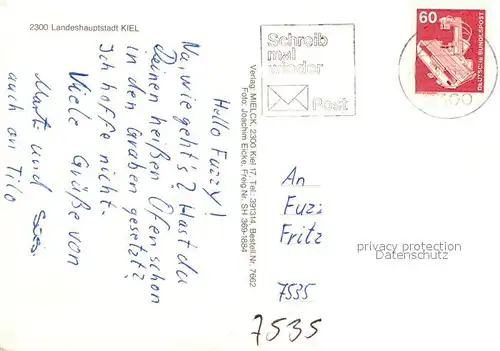 2300 Landeshauptstadt KIEL
Hello Fuzzy!
Na, wie geht's? Hast du
Deinen heißen Ofen schon
in den Graben gesetzt?
Ich hoffe nicht.
Viele Grüße von
Marte und
auch an Tilo
Verlag: MIELCK, 2300 Kiel 17, Tel.: 391314 Bestell Nr. 7662
Foto: Joachim Eicke, Freig.Nr. SH 369-1884
Schreib
mal
wieder
Post
60
DEUTSCHE BUNDESPOST
An
Fuzzi
Fritz
privacy protection
Datenschutz
7535
7535